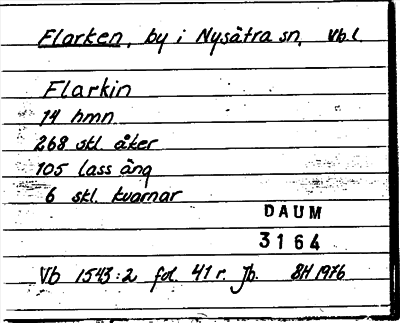 Flarken, by i Nysätra sn, Vbl.
Flarkin
14 hmn
268 skl. åker
105 lass äng
6 skl. kvarnar
DAUM
3164
Vb 1543:2 fol 41 r. Jb. BH 1976